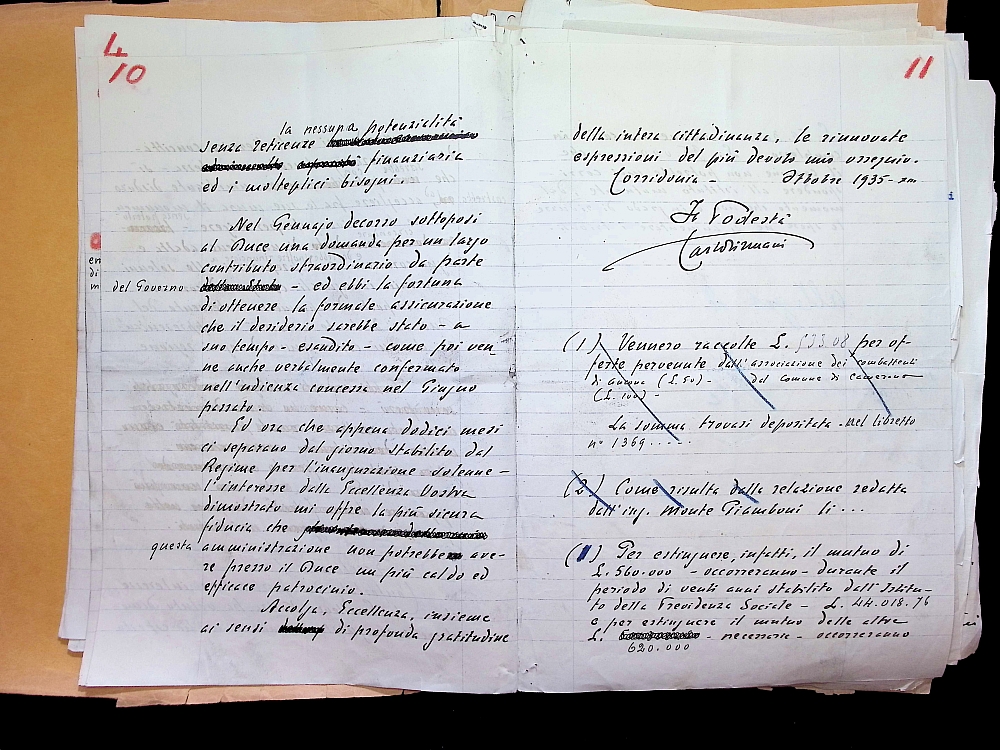 4
10
la nessuna potenzialità
senza reticenze
finanziaria
ed i molteplici bisogni.
Nel Gennajo decorso sottoposi
al Duce una domanda per un largo
contributo straordinario da parte
del Governo - ed ebbi la fortuna
di ottenere la formale assicurazione
che il desiderio sarebbe stato - a
suo tempo - esaudito - come poi ven-
ne anche verbalmente confermato
nell'udienza concessa nel Giugno
passato.
Ed ora che appena dodici mesi
ci separano dal giorno stabilito dal
Regime per l'inaugurazione solenne -
l'interesse dalla Eccellenza Vostra
dimostrato mi offre la più sicura
fiducia che
questa amministrazione non potrebbe ave-
re presso il Duce un più caldo ed
efficace patrocinio.
Accolga, Eccellenza, insieme
ai sensi di profonda gratitudine
11
della intera cittadinanza, le rinnovate
espressioni del più devoto mio ossequio.
Corridonia - Ottobre 1935-XIII
Il Podestà
(1) Vennero raccolte L. 533.08 per of-
ferte pervenute dall'associazione dei combattenti
di Ancona (L. 50) - dal Comune di Camerano
(L. 100) -
La somma trovasi depositata nel libretto
n° 1369.....
(2) Come risulta dalla relazione redatta
dall'ing. Monte Giamboni li...
(1) Per estinguere, infatti, il mutuo di
L. 560.000 - occorreranno - durante il
periodo di venti anni stabilito dall'Istitu-
to della Previdenza Sociale - L. 44.018.76
e per estinguere il mutuo delle altre
L. - necessarie - occorreranno
620.000
en
di
m